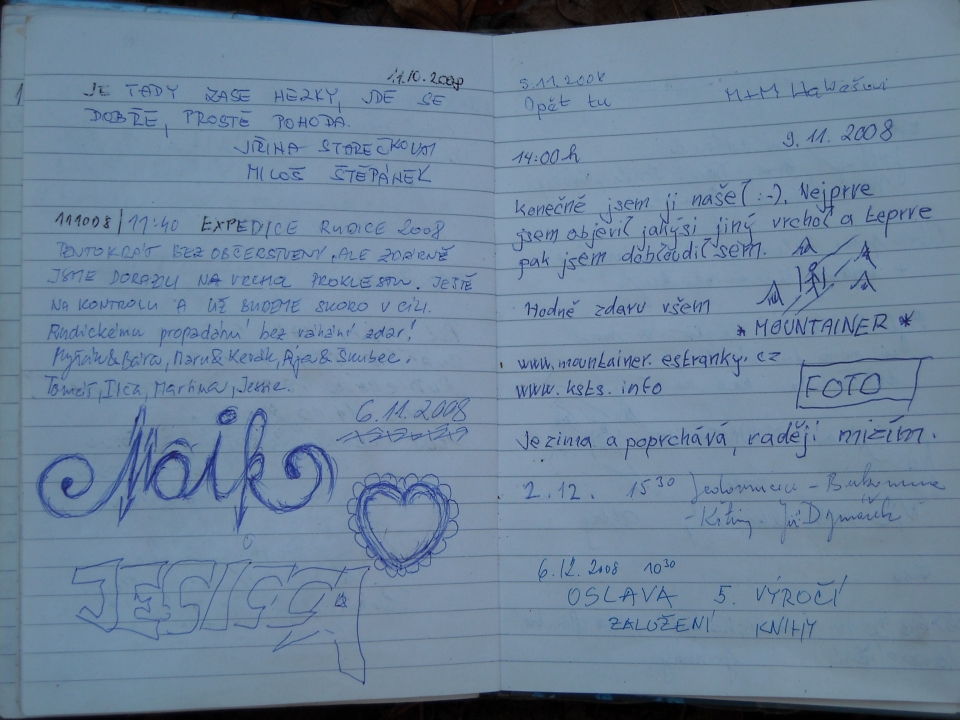 11.10.2008
JE TADY ZASE HEZKY, JDE SE
DOBŘE, PROSTĚ POHODA.
JIŘINA STAREČKOVÁ
MILOŠ ŠTĚPÁNEK
111008/11:40 EXPEDICE RUDICE 2008
TENTOKRÁT BEZ OBČERSTVENÍ, ALE ZDÁRNĚ
JSME DORAZILI NA VRCHOL PROKLEST. JEŠTĚ
NA KONTROLU A UŽ BUDEME SKORO V CÍLI.
Rudickému propadání bez váhání zdar!
Tomáš, Ilča, Martina, Jessie.
6.11.2008
Maik
JESICA
9.11.2008
Opět tu M+M
9.11.2008
14:00h
Konečně jsem ji našel :-). Nejprve
jsem objevil jakýsi jiný vrchol a teprve
pak jsem dobloudil sem.
Hodně zdaru všem
* MOUNTAINER *
www.mountainer.estranky.cz
www.ksts.info
FOTO
Je zima a poprchává, raději mizím.
2.12. 15 30 - Bukovina
- Křtiny Jiří
6.12.2008 10 30
OSLAVA 5. VÝROČÍ
ZALOŽENÍ KNIHY